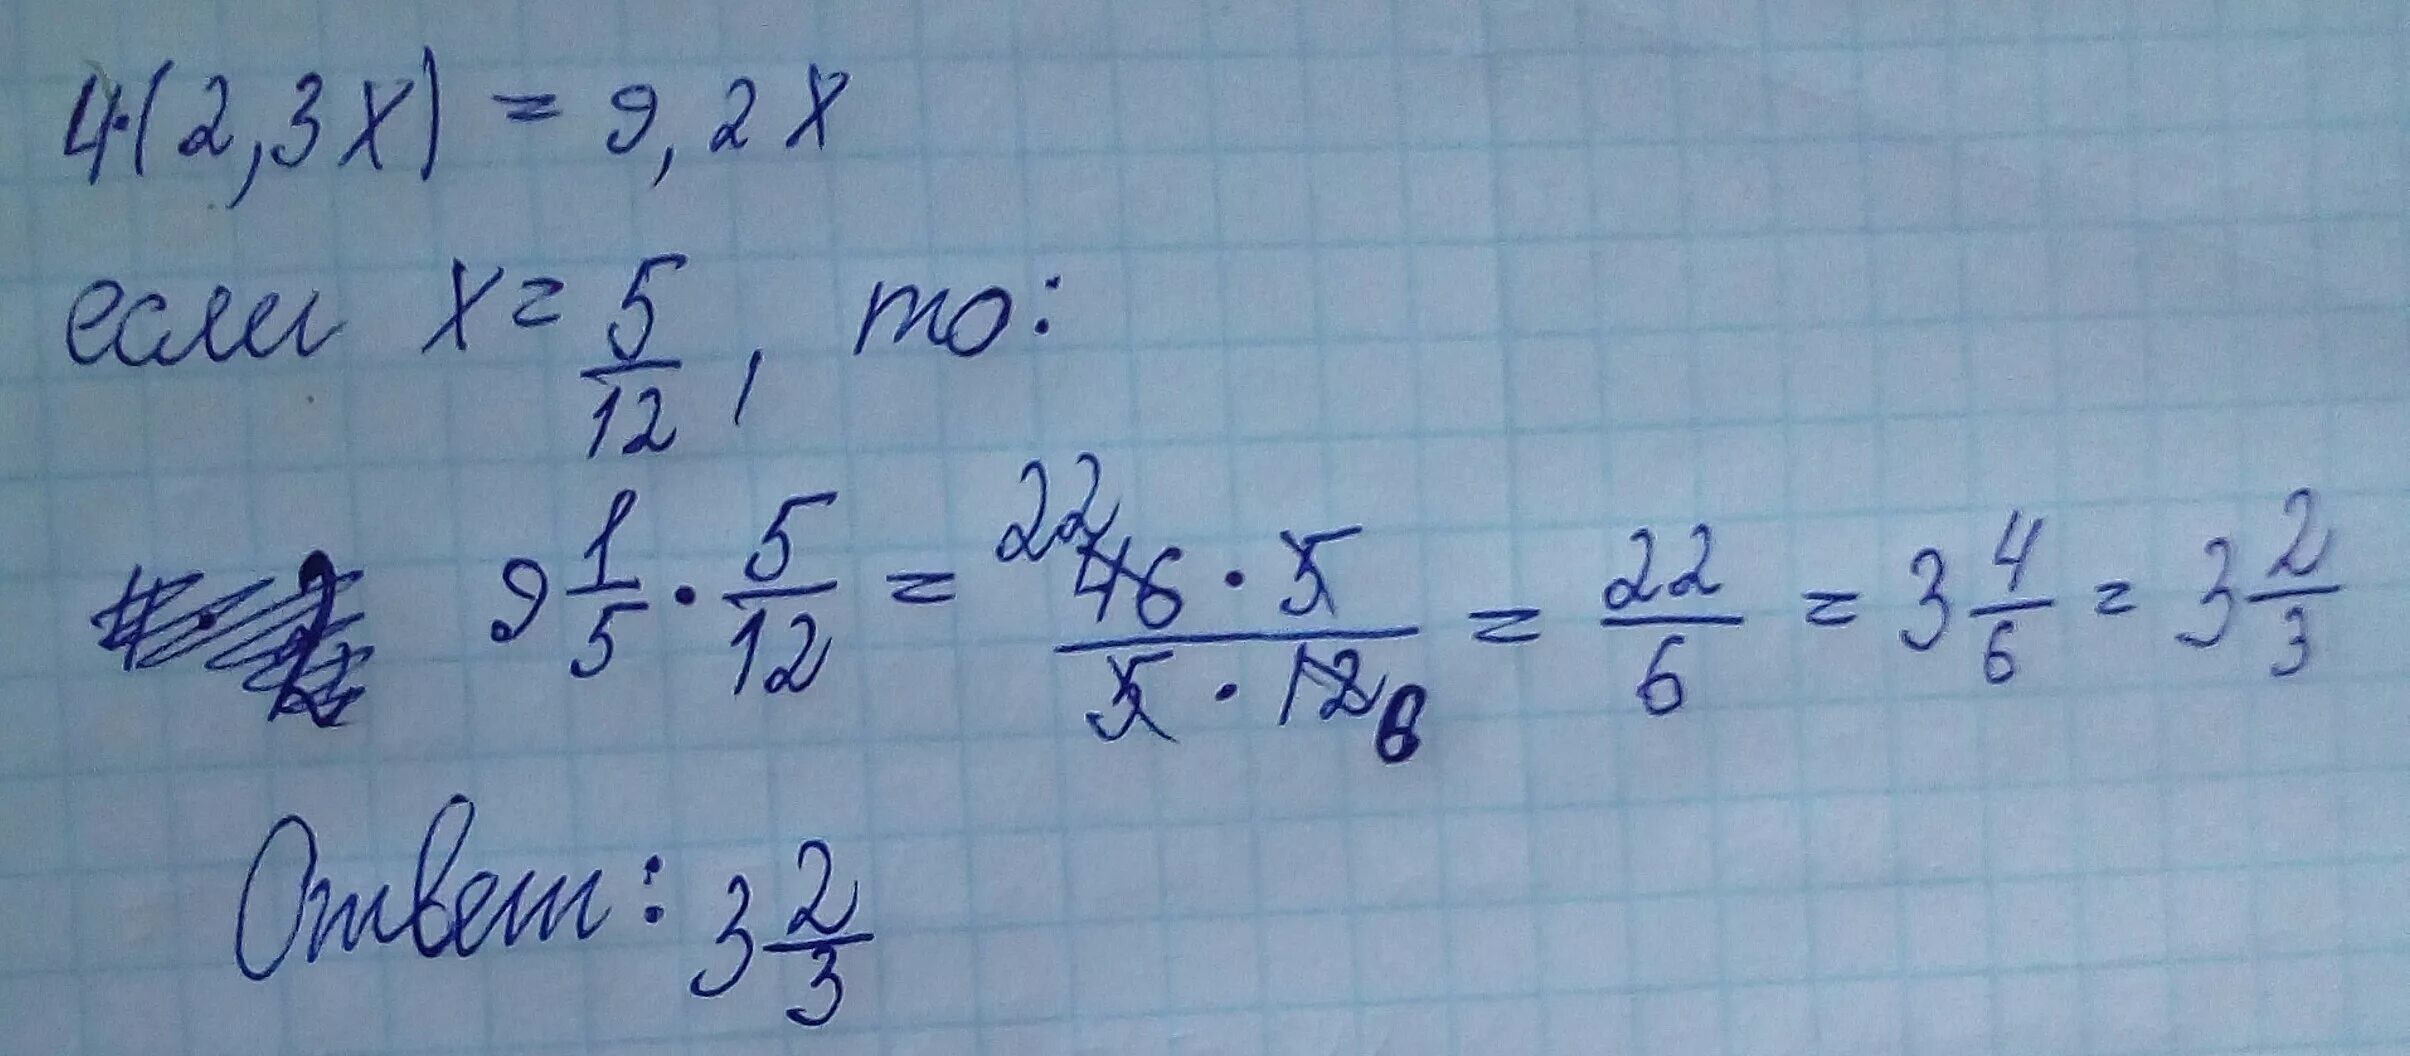 4·(2,3x) = 9,2x
если x = 5/12, то:
9 1/5 · 5/12 = 22 46 · 5 / 5 · 12 6 = 22/6 = 3 4/6 = 3 2/3
Ответ: 3 2/3